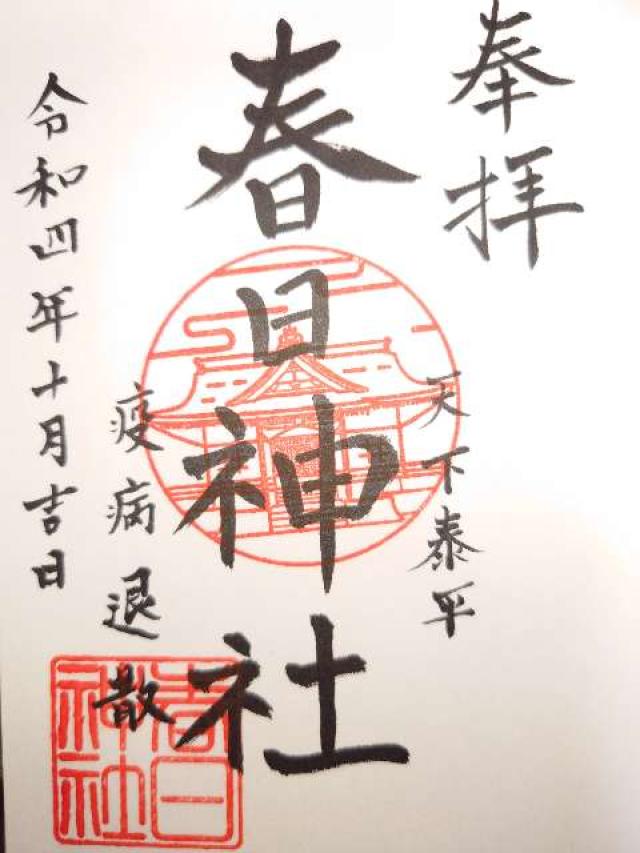 奉拝
天下泰平
春日神社
疫病退散
令和四年十月吉日
春日
神社